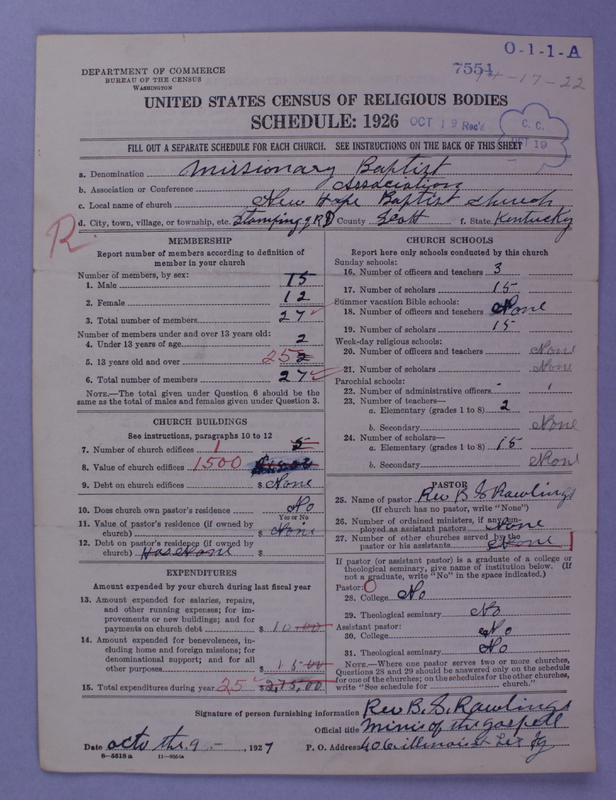 O-1-1-A
7551
74-17-22
DEPARTMENT OF COMMERCE
BUREAU OF THE CENSUS
WASHINGTON
UNITED STATES CENSUS OF RELIGIOUS BODIES
SCHEDULE: 1926
OCT 19 Rec'd
C. C.
OCT 19
FILL OUT A SEPARATE SCHEDULE FOR EACH CHURCH. SEE INSTRUCTIONS ON THE BACK OF THIS SHEET
a. Denomination Missionary Baptist
b. Association or Conference Association
c. Local name of church New Hope Baptist church
d. City, town, village, or township, etc. Stamping g RD County Scott f. State Kentucky
R
MEMBERSHIP
Report number of members according to definition of member in your church
Number of members, by sex:
1. Male 15
2. Female 12
3. Total number of members 27
Number of members under and over 13 years old:
4. Under 13 years of age 2
5. 13 years old and over 25 2
6. Total number of members 27
NOTE.—The total given under Question 6 should be the same as the total of males and females given under Question 3.
CHURCH BUILDINGS
See instructions, paragraphs 10 to 12
7. Number of church edifices 1 5
8. Value of church edifices 1500 $
9. Debt on church edifices $ None
10. Does church own pastor's residence? No
Yes or No
11. Value of pastor's residence (if owned by church) $ None
12. Debt on pastor's residence (if owned by church) Has None $
EXPENDITURES
Amount expended by your church during last fiscal year
13. Amount expended for salaries, repairs, and other running expenses; for improvements or new buildings; and for payments on church debt $ 10.00
14. Amount expended for benevolences, including home and foreign missions; for denominational support; and for all other purposes $ 15.00
15. Total expenditures during year 25 $ 2,75,00
CHURCH SCHOOLS
Report here only schools conducted by this church
Sunday schools:
16. Number of officers and teachers 3
17. Number of scholars 15
Summer vacation Bible schools:
18. Number of officers and teachers None
19. Number of scholars 15
Week-day religious schools:
20. Number of officers and teachers None
21. Number of scholars None
Parochial schools:
22. Number of administrative officers
23. Number of teachers—
a. Elementary (grades 1 to 8) 2
b. Secondary None
24. Number of scholars—
a. Elementary (grades 1 to 8) 15
b. Secondary None
PASTOR
25. Name of pastor Rev B S Rawlings
(If church has no pastor, write "None")
26. Number of ordained ministers, if any, employed as assistant pastors None
27. Number of other churches served by the pastor or his assistants None
If pastor (or assistant pastor) is a graduate of a college or theological seminary, give name of institution below. (If not a graduate, write "No" in the space indicated.)
Pastor: O
28. College No
29. Theological seminary No
Assistant pastor:
30. College No
31. Theological seminary No
NOTE.—Where one pastor serves two or more churches, Questions 28 and 29 should be answered only on the schedule for one of the churches; on the schedules for the other churches, write "See schedule for church."
Signature of person furnishing information Rev B. S. Rawlings
Official title Minis of the gospell
Date octo the 9 -, 1927 P. O. Address 406 illinois st Lex Ky
8-5518 a